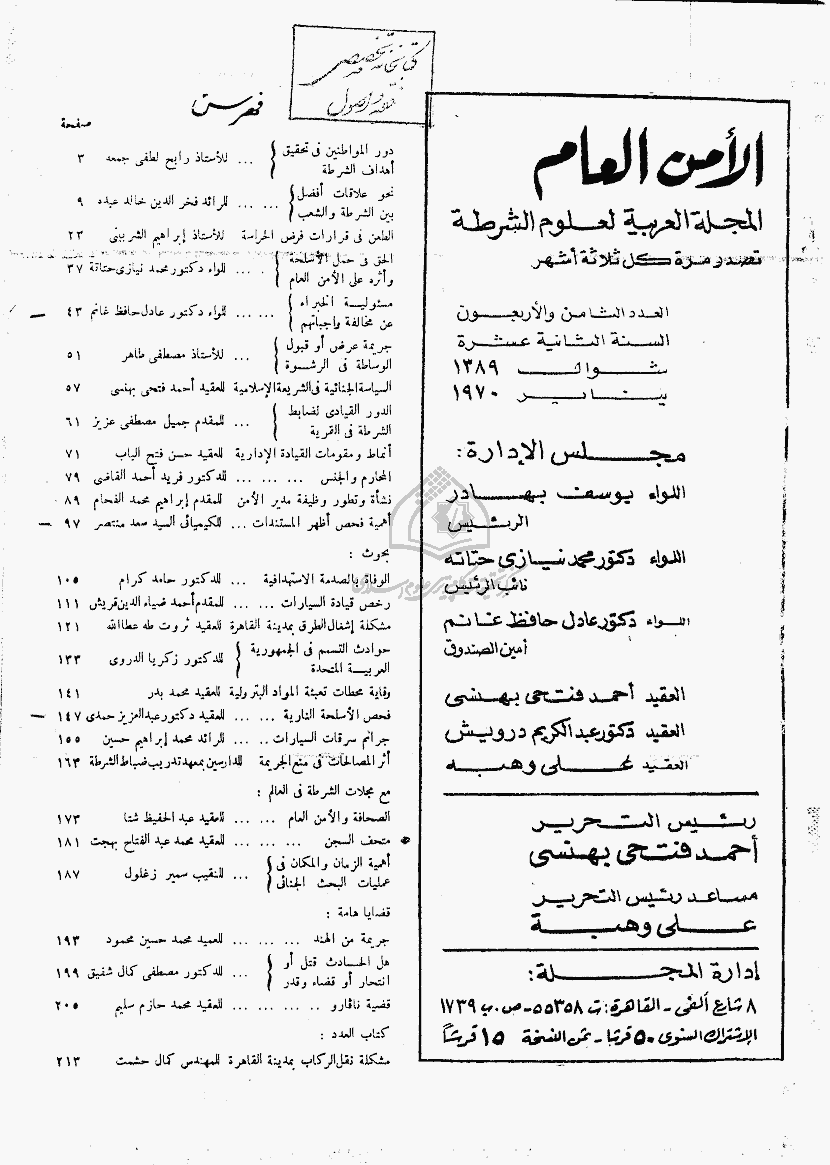 الأمن العام
المجلة العربية لعلوم الشرطة
تصدر مرة كل ثلاثة أشهر
العدد الثامن والأربعون
السنة الثانية عشرة
شوال ١٣٨٩
يناير ١٩٧٠
مجلس الإدارة :
اللواء يوسف بهادر
الرئيس
اللواء دكتور محمد نيازى حتاته
نائب الرئيس
اللواء دكتور عادل حافظ غانم
أمين الصندوق
العقيد أحمد فتحى بهنسى
العقيد دكتور عبد الكريم درويش
العقيد على وهبه
رئيس التحرير
أحمد فتحى بهنسى
مساعد رئيس التحرير
على وهبة
إدارة المجلة :
٨ شارع ألفى - القاهرة : ت ٥٥٣٥٨ - ص . ب ١٧٣٩
الإشتراك السنوى ٥٠ قرشا - ثمن النسخة ١٥ قرشاً
كتابخانه تخصصى
فهرست
صفحة
دور المواطنين فى تحقيق
أهداف الشرطة ... للأستاذ رابح لطفى جمعه ٣
نحو علاقات أفضل
بين الشرطة والشعب ... ... للرائد فخر الدين خالد عبده ٩
الطعن فى قرارات فرض الحراسة للأستاذ إبراهيم الشربينى ٢٣
الحق فى حمل الأسلحة
وأثره على الأمن العام ... للواء دكتور محمد نيازى حتاتة ٣٧
مسئولية الخبراء
عن مخالفة واجباتهم ... ... للواء دكتور عادل حافظ غانم ٤٣
جريمة عرض أو قبول
الوساطة فى الرشوة ... للأستاذ مصطفى طاهر ٥١
السياسة الجنائية فى الشريعة الإسلامية للعقيد أحمد فتحى بهنسى ٥٧
الدور القيادى لضابط
الشرطة فى القرية ... للمقدم جميل مصطفى عزيز ٦١
أنماط ومقومات القيادة الإدارية للعقيد حسن فتح الباب ٧١
المحارم والجنس ... ... ... للدكتور فريد أحمد القاضى ٧٩
نشأة وتطور وظيفة مدير الأمن للمقدم إبراهيم محمد الفحام ٨٩
أهمية فحص أظهر المستندات ... للكيميائى السيد سعد منتصر ٩٧
بحوث :
الوفاة بالصدمة الاستهدافية ... للدكتور حامد كرام ١٠٥
رخص قيادة السيارات ... ... للمقدم أحمد ضياء الدين قريش ١١١
مشكلة إشغال الطرق بمدينة القاهرة للعقيد ثروت طه عطا الله ١٢١
حوادث التسمم فى الجمهورية
العربية المتحدة للدكتور زكريا الدروى ١٣٣
وقاية محطات تعبئة المواد البترولية للعقيد محمد بدر ١٤١
فحص الأسلحة النارية ... ... للعقيد دكتور عبد العزيز حمدى ١٤٧
جرائم سرقات السيارات .. ... للرائد محمد إبراهيم حسين ١٥٥
أثر المصالحات فى منع الجريمة للدارسين بمعهد تدريب ضباط الشرطة ١٦٣
مع مجلات الشرطة فى العالم :
الصحافة والأمن العام ... ... للعقيد عبد الحفيظ شتا ١٧٣
متحف السجن ... ... ... للعقيد محمد عبد الفتاح بهجت ١٨١
أهمية الزمان والمكان فى
عمليات البحث الجنائى ... للنقيب سمير زغلول ١٨٧
قضايا هامة :
جريمة من الهند ... ... ... للعميد محمد حسين محمود ١٩٣
هل الحادث قتل أو
انتحار أو قضاء وقدر ... للدكتور مصطفى كمال شفيق ١٩٩
قضية نافارو .. ... ... ... للعقيد محمد حازم سليم ٢٠٥
كتاب العدد :
مشكلة نقل الركاب بمدينة القاهرة للمهندس كمال حشمت ٢١٣